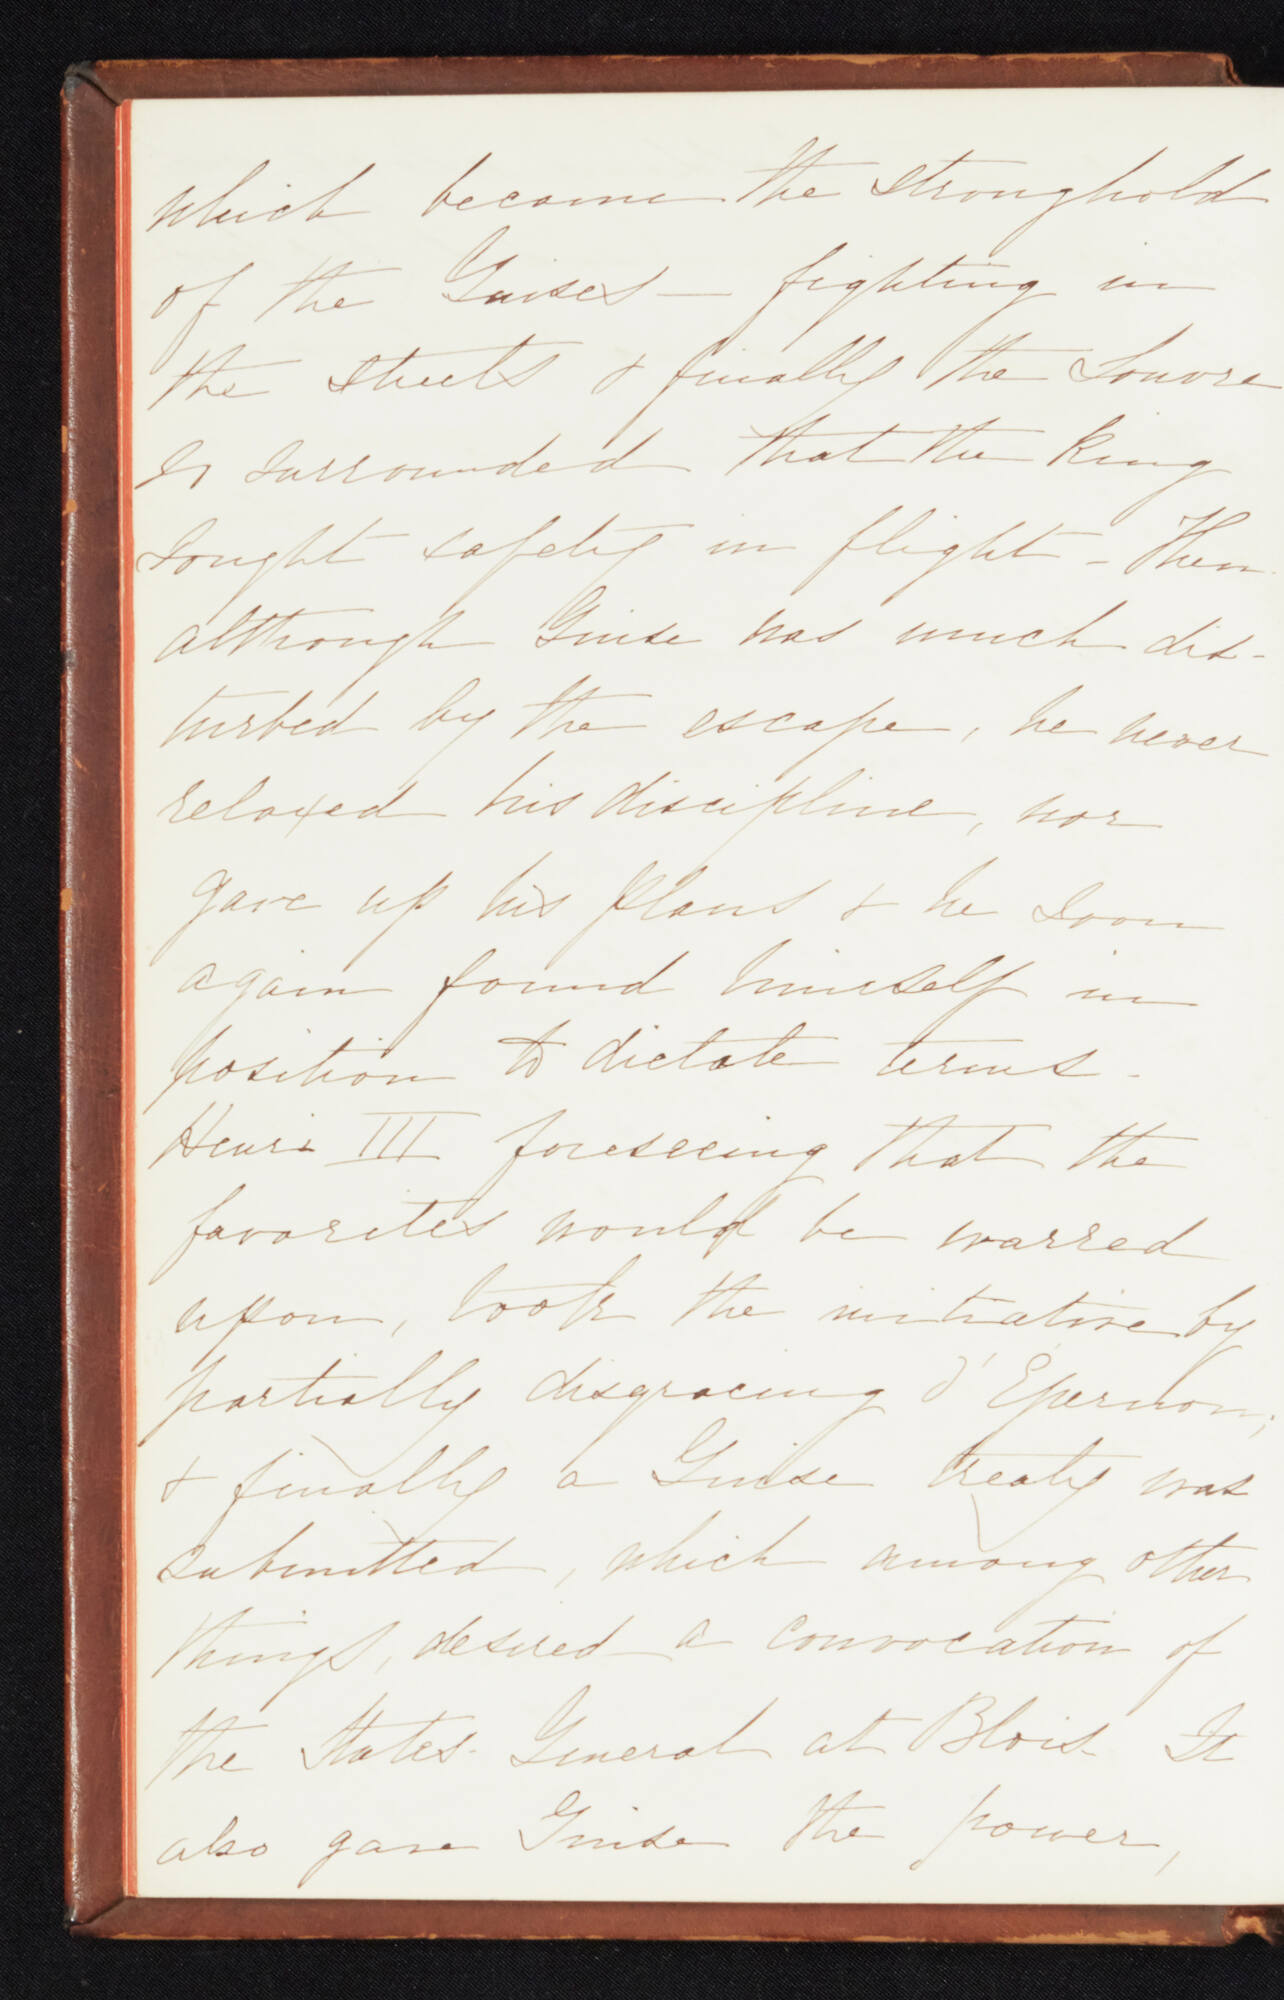 which became the stronghold
of the Guises — fighting in
the streets & finally the Louvre
so surrounded that the King
sought safety in flight - Then
although Guise was much dis-
turbed by the escape, he never
relaxed his discipline, nor
gave up his plans & he soon
again found himself in
position to dictate terms -
Henri III foreseeing that the
favorites would be warred
upon, took the initiative by
partially disgracing d'Epernon,
& finally a Guise treaty was
submitted, which among other
things, desired a convocation of
the States-General at Blois. It
also gave Guise the power,